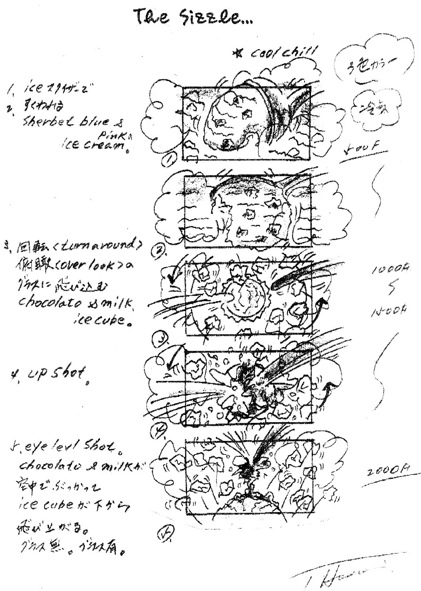 The Sizzle...
★ cool chill
3色カラー
冷気
1. ice
2. すくわれる
Sherbet blue &
Pink a
ice cream。
①
500F
②
3. 回転〈turnaround〉
俯瞰〈over look〉a
グラスに飛び込む
chocolato & milk
ice cube。
1000F
1500F
③
4. up shot。
④
5. eye levl shot。
chocolato & milkが
空中でぶつかって
ice cubeが下から
飛び上がる。
グラス無。グラス有。
⑤
2000F